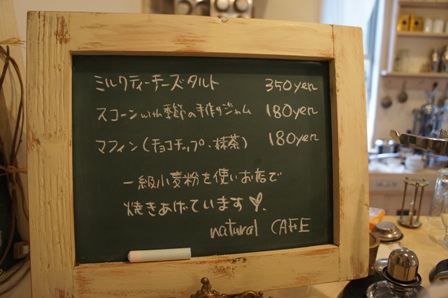 ミルクティーチーズタルト 350yen
スコーンwith季節の手作りジャム 180yen
マフィン(チョコチップ・抹茶) 180yen
一級小麦粉を使いお店で
焼きあげています♡。
natural CAFE